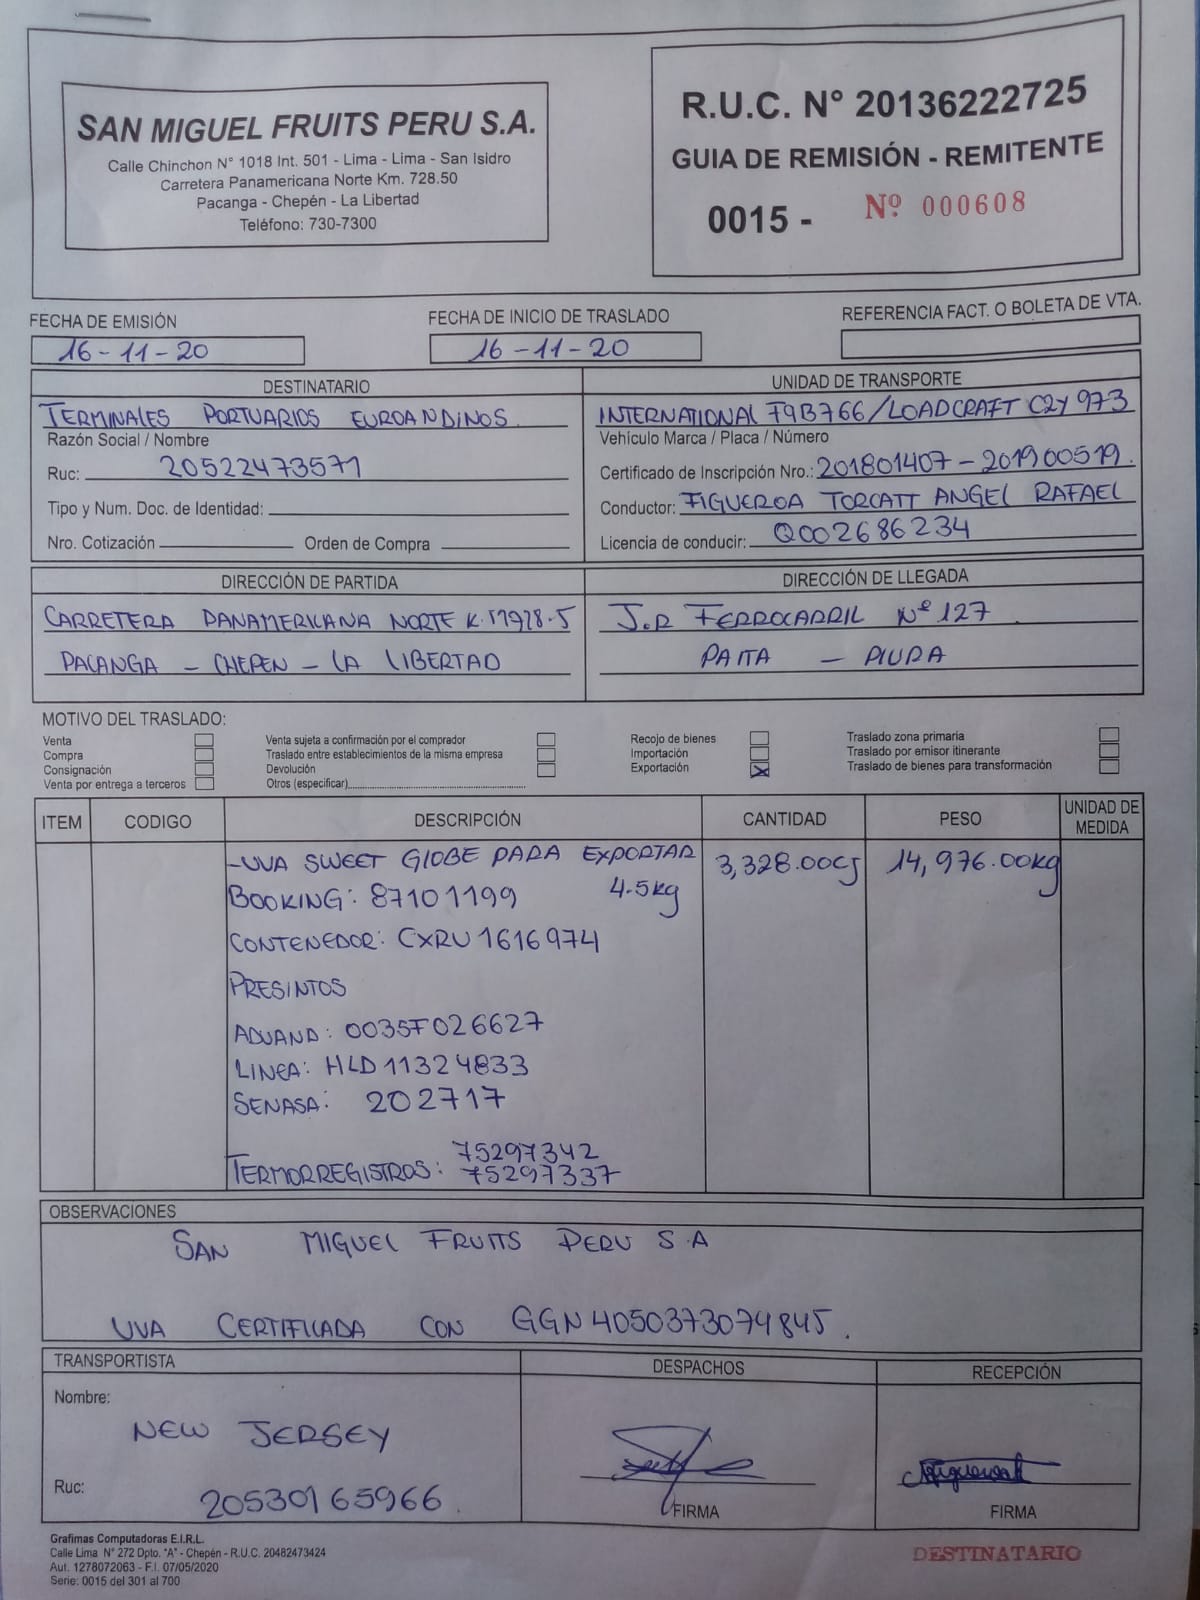 SAN MIGUEL FRUITS PERU S.A.
Calle Chinchon N° 1018 Int. 501 - Lima - Lima - San Isidro
Carretera Panamericana Norte Km. 728.50
Pacanga - Chepén - La Libertad
Teléfono: 730-7300
R.U.C. N° 20136222725
GUIA DE REMISIÓN - REMITENTE
0015 - Nº 000608
FECHA DE EMISIÓN
16-11-20
FECHA DE INICIO DE TRASLADO
16-11-20
REFERENCIA FACT. O BOLETA DE VTA.
DESTINATARIO
TERMINALES PORTUARIOS EUROANDINOS
Razón Social / Nombre
Ruc: 20522473571
Tipo y Num. Doc. de Identidad:
Nro. Cotización Orden de Compra
UNIDAD DE TRANSPORTE
INTERNATIONAL F9B766/LOADCRAFT C2Y973
Vehículo Marca / Placa / Número
Certificado de Inscripción Nro.: 201801407 - 201900519.
Conductor: FIGUEROA TORCATT ANGEL RAFAEL
Licencia de conducir: Q002686234
DIRECCIÓN DE PARTIDA
CARRETERA PANAMERICANA NORTE
PACANGA - CHEPEN - LA LIBERTAD
DIRECCIÓN DE LLEGADA
J.R FERROCARRIL Nº 127
PAITA - PIURA
MOTIVO DEL TRASLADO:
Venta
Compra
Consignación
Venta por entrega a terceros
Venta sujeta a confirmación por el comprador
Traslado entre establecimientos de la misma empresa
Devolución
Otros (especificar)
Recojo de bienes
Importación
Exportación X
Traslado zona primaria
Traslado por emisor itinerante
Traslado de bienes para transformación
ITEM CODIGO DESCRIPCIÓN CANTIDAD PESO UNIDAD DE MEDIDA
-UVA SWEET GLOBE PARA EXPORTAR 3,328.00CJ 14,976.00kg
BOOKING: 87101199 4.5kg
CONTENEDOR: CXRU1616974
PRESINTOS
ADUANA: 0035F026627
LINEA: HLD11324833
SENASA: 202717
75297342
TERMORREGISTROS: 75297337
OBSERVACIONES
SAN MIGUEL FRUITS PERU S.A
UVA CERTIFICADA CON GGN4050373074845.
TRANSPORTISTA
Nombre:
NEW JERSEY
Ruc:
20530165966.
DESPACHOS
FIRMA
RECEPCIÓN
FIRMA
Grafimas Computadoras E.I.R.L.
Calle Lima N° 272 Dpto. "A" - Chepén - R.U.C. 20482473424
Aut. 1278072063 - F.I. 07/05/2020
Serie: 0015 del 301 al 700
DESTINATARIO